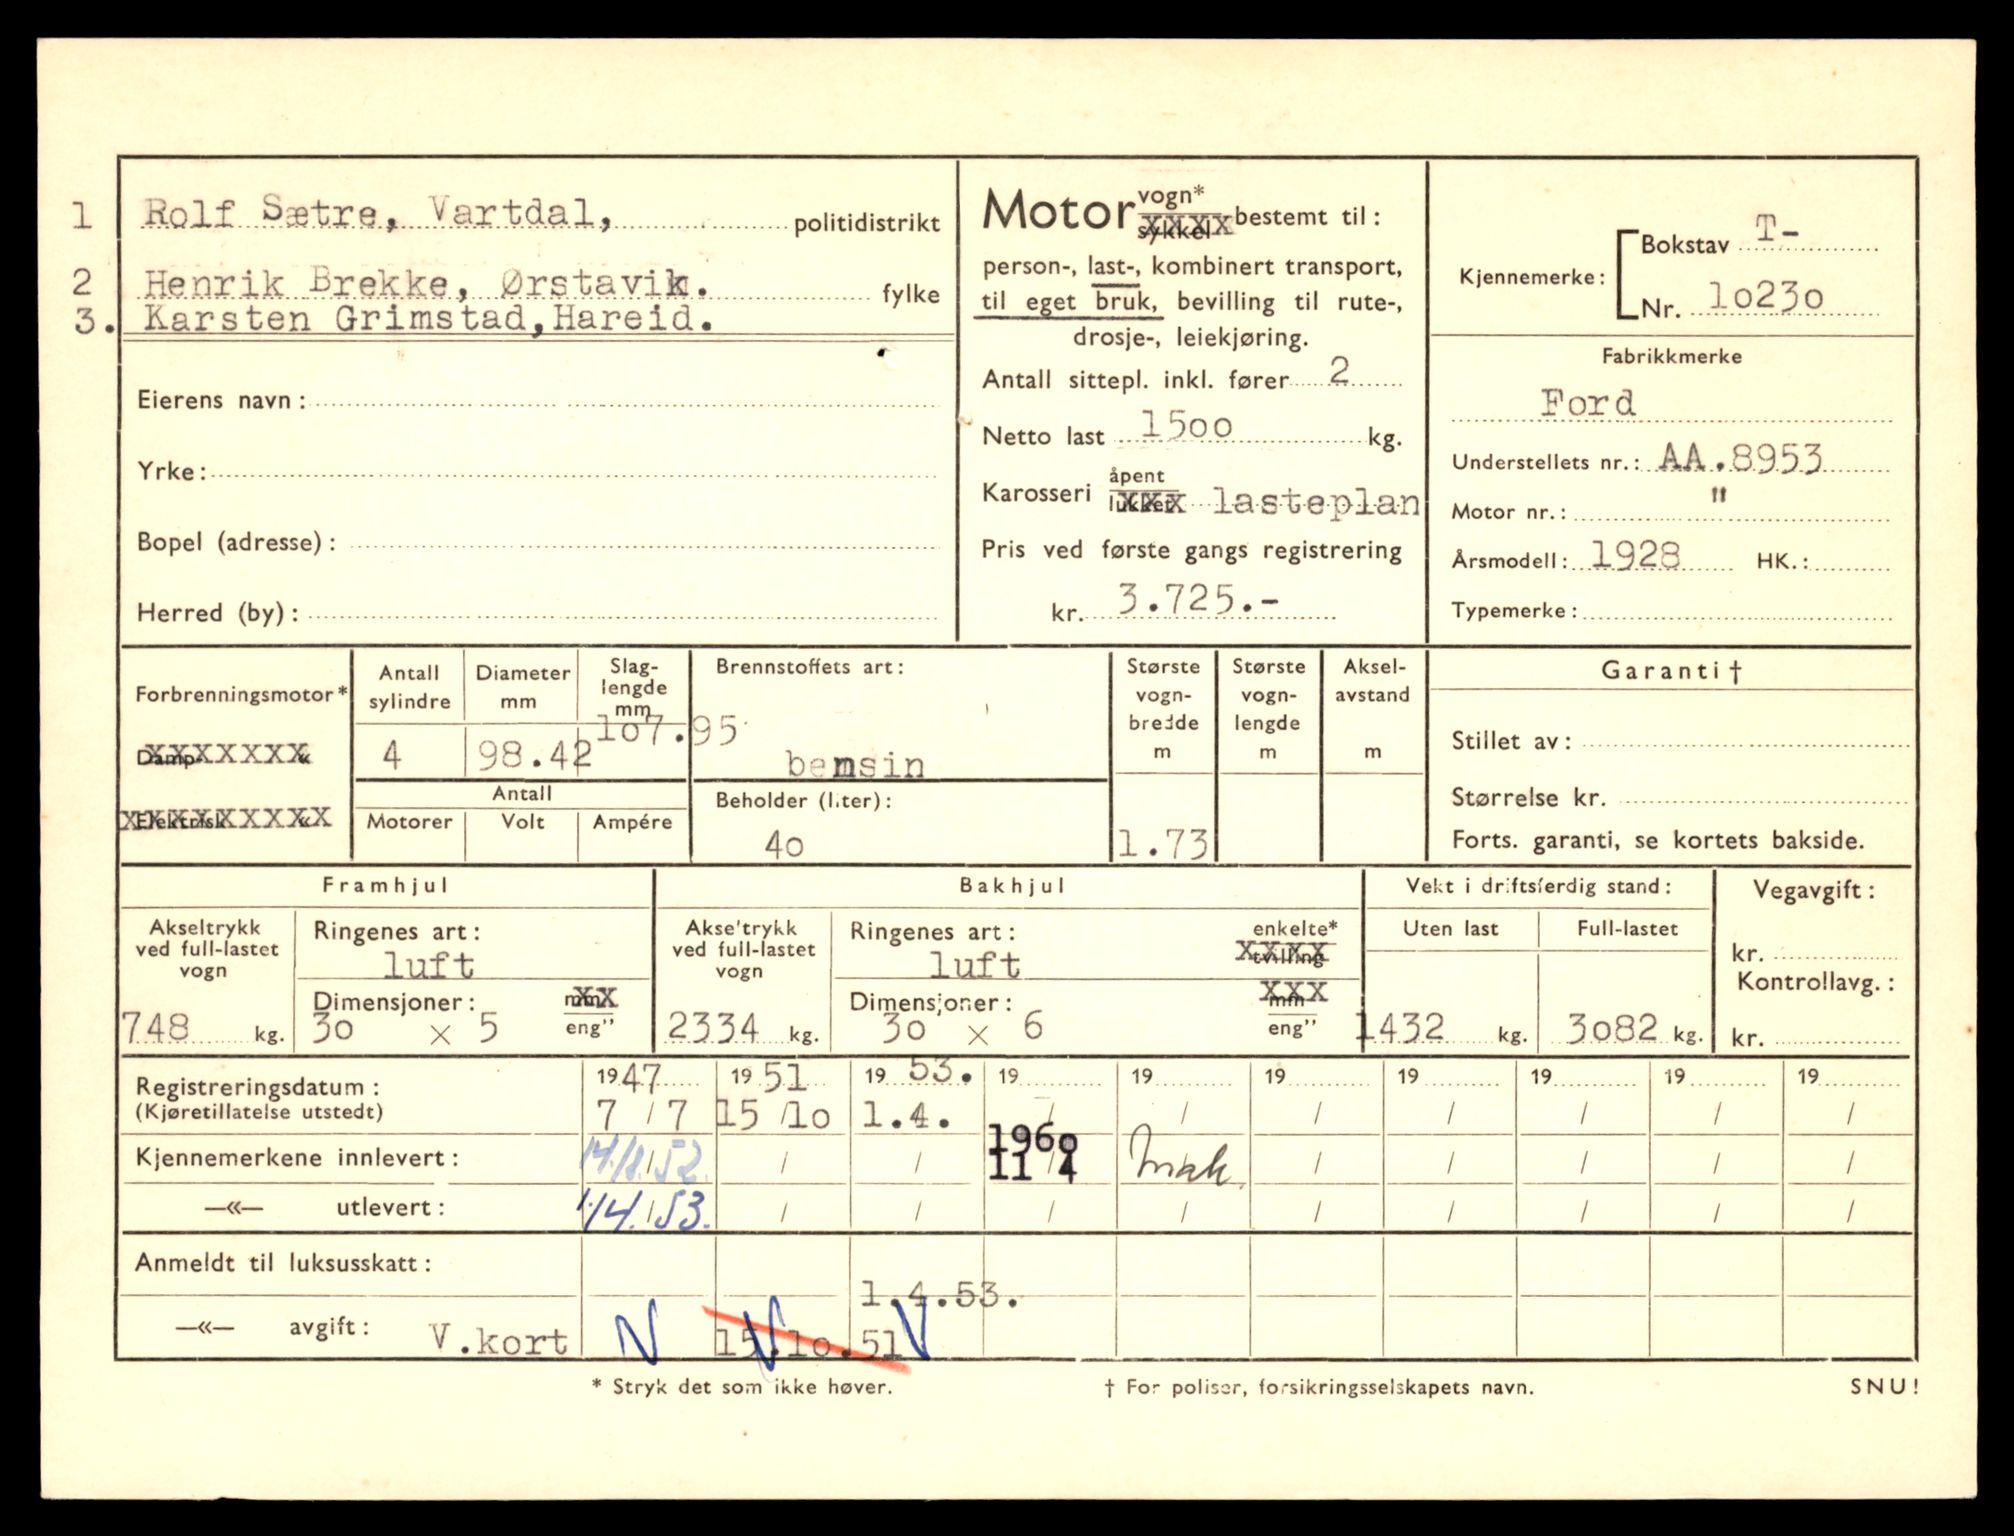 1 Rolf Sætre, Vartdal, politidistrikt
2 Henrik Brekke, Ørstavik. fylke
3. Karsten Grimstad, Hareid.
Eierens navn:
Yrke:
Bopel (adresse):
Herred (by):
Motor vogn* sykkel bestemt til:
person-, last-, kombinert transport,
til eget bruk, bevilling til rute-,
drosje-, leiekjøring.
Antall sittepl. inkl. fører 2
Netto last 1500 kg.
Karosseri åpent lukket lasteplan
Pris ved første gangs registrering
kr. 3.725.-
Kjennemerke:
Bokstav T-
Nr. 10230
Fabrikkmerke
Ford
Understellets nr.: AA.8953
Motor nr.: "
Årsmodell: 1928 HK.:
Typemerke:
Forbrenningsmotor*
Damp- «
Elektrisk «
Antall sylindre
4
Diameter mm
98.42
Slag-lengde mm
107.95
Antall
Motorer Volt Ampére
Brennstoffets art:
bensin
Beholder (liter):
40
Største vogn-bredde m
1.73
Største vogn-lengde m
Aksel-avstand m
Garanti †
Stillet av:
Størrelse kr.
Forts. garanti, se kortets bakside.
Framhjul
Akseltrykk ved full-lastet vogn
748 kg.
Ringenes art:
luft
Dimensjoner: mm eng"
30 × 5
Bakhjul
Akseltrykk ved full-lastet vogn
2334 kg.
Ringenes art: enkelte* tvilling
luft
Dimensjoner: mm eng"
30 × 6
Vekt i driftsferdig stand:
Uten last Full-lastet
1432 kg. 3082 kg.
Vegavgift:
kr.
Kontrollavg.:
kr.
Registreringsdatum: 1947 1951 1953. 19 19 19 19 19 19 19
(Kjøretillatelse utstedt) 7/7 15/10 1.4. / / / / / / /
1960
Kjennemerkene innlevert: 14./8./52. / / 11/4 mak. / / / / /
—«— utlevert: 1/4./53. / / / / / / / / /
Anmeldt til luksusskatt:
1.4.53.
—«— avgift: V.kort V 15.10.51 V V
* Stryk det som ikke høver. † For poliser, forsikringsselskapets navn. SNU!